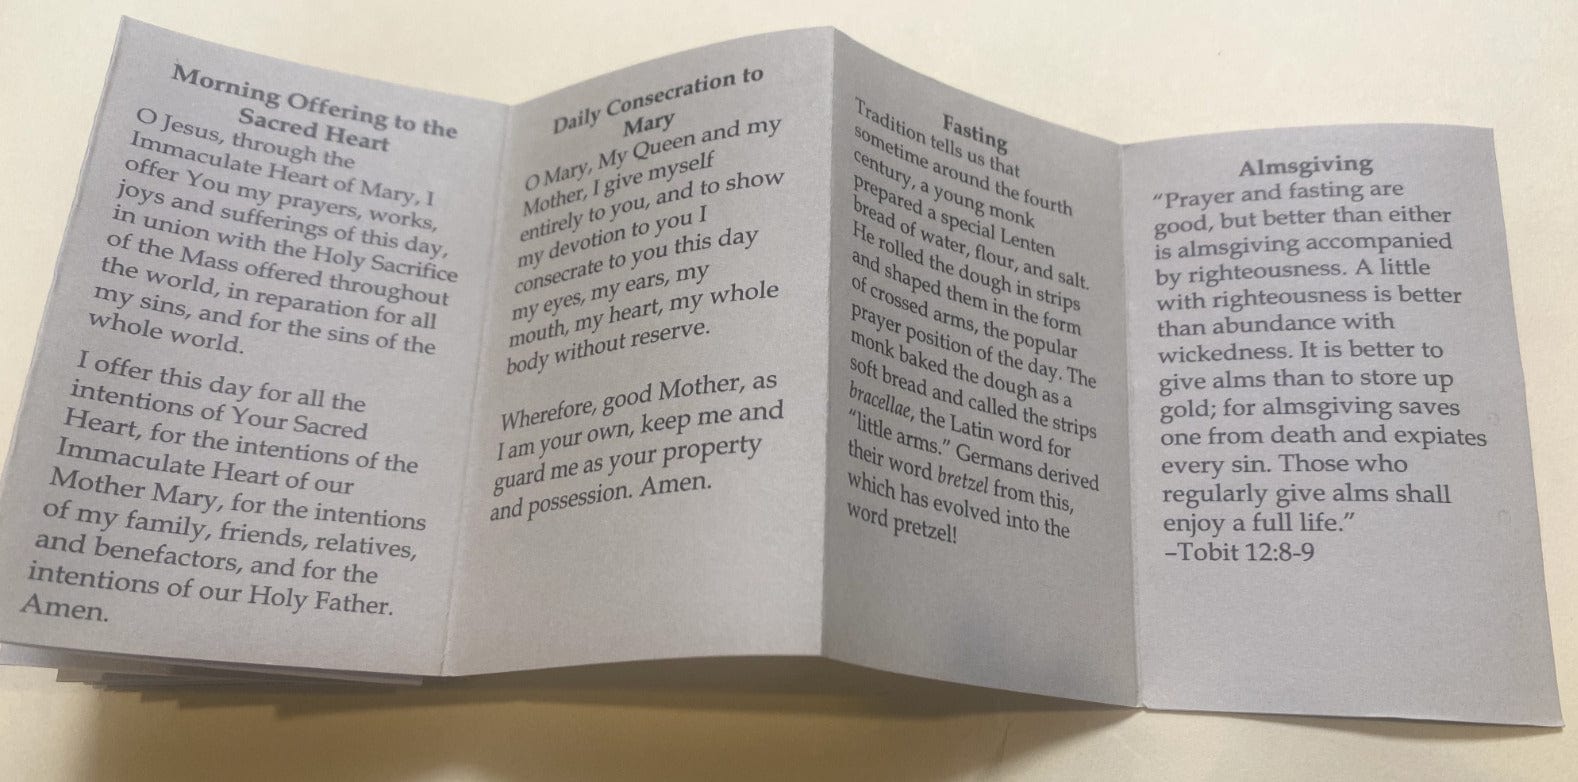 Morning Offering to the
Sacred Heart
O Jesus, through the
Immaculate Heart of Mary, I
offer You my prayers, works,
joys and sufferings of this day,
in union with the Holy Sacrifice
of the Mass offered throughout
the world, in reparation for all
my sins, and for the sins of the
whole world.
I offer this day for all the
intentions of Your Sacred
Heart, for the intentions of the
Immaculate Heart of our
Mother Mary, for the intentions
of my family, friends, relatives,
and benefactors, and for the
intentions of our Holy Father.
Amen.
Daily Consecration to
Mary
O Mary, My Queen and my
Mother, I give myself
entirely to you, and to show
my devotion to you I
consecrate to you this day
my eyes, my ears, my
mouth, my heart, my whole
body without reserve.
Wherefore, good Mother, as
I am your own, keep me and
guard me as your property
and possession. Amen.
Fasting
Tradition tells us that
sometime around the fourth
century, a young monk
prepared a special Lenten
bread of water, flour, and salt.
He rolled the dough in strips
and shaped them in the form
of crossed arms, the popular
prayer position of the day. The
monk baked the dough as a
soft bread and called the strips
bracellae, the Latin word for
“little arms.” Germans derived
their word bretzel from this,
which has evolved into the
word pretzel!
Almsgiving
“Prayer and fasting are
good, but better than either
is almsgiving accompanied
by righteousness. A little
with righteousness is better
than abundance with
wickedness. It is better to
give alms than to store up
gold; for almsgiving saves
one from death and expiates
every sin. Those who
regularly give alms shall
enjoy a full life.”
–Tobit 12:8-9